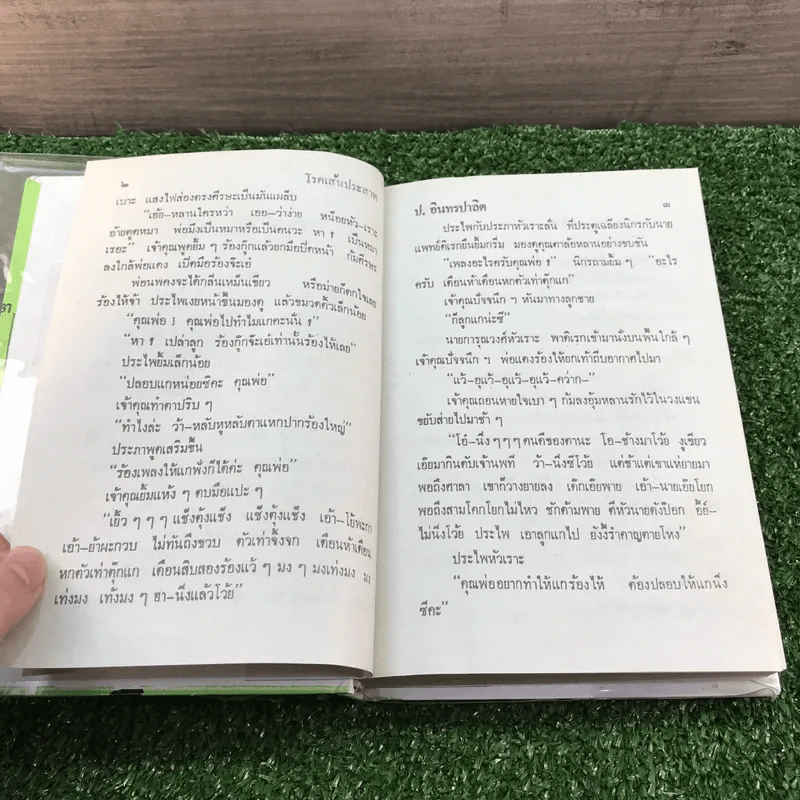 ๒ โรคเส้นประสาท
เบาะ แสงไฟส่องตรงศีรษะเป็นมันแผล็บ
“เฮ้ย–หลานใครหว่า เฮอ–ว่าง่าย หน่อยหัว–เราะ
อ้ายตูดหมา พ่อมึงเป็นหมาหรือเป็นคนวะ หา ? เป็นหมา
เรอะ” เจ้าคุณพูดยิ้ม ๆ ร้องกุ๊กแล้วยกมือปิดหน้า ก้มศีรษะ
ลงใกล้พ่อแดง เปิดมือร้องจ๊ะเอ๋
พ่อนพดงจะได้กลิ่นเหม็นเขียว หรือม่ายก็ตกใจเลย
ร้องไห้จ้า ประไพเงยหน้าขึ้นมองดู แล้วขมวดคิ้วเล็กน้อย
“คุณพ่อ ! คุณพ่อไปทำไมแกคะนั่น ?”
“หา ? เปล่าลูก ร้องกุ๊กจ๊ะเอ๋เท่านั้นร้องไห้เลย”
ประไพยิ้มเล็กน้อย
“ปลอบแกหน่อยซิคะ คุณพ่อ”
เจ้าคุณทำตาปริบ ๆ
“ทำไงล่ะ ว้า–หลับหูหลับตาแหกปากร้องใหญ่”
ประภาพูดเสริมขึ้น
“ร้องเพลงให้แกฟังก็ได้ค่ะ คุณพ่อ”
เจ้าคุณยิ้มแห้ง ๆ ตบมือแปะ ๆ
“เย้ว ๆ ๆ ๆ แช็งตุ้งแช็ง แช็งตุ้งแช็ง เอ้า–โย้พะกา
เอ้า–ย้าผะกวบ ไม่ทันถึงขวบ ตัวเท่าจิ้งจก เดือนห้าเดือน
หกตัวเท่าตุ๊กแก เดือนสิบสองร้องแว้ ๆ มง ๆ มงเท่งมง มง
เท่งมง เท้งมง ๆ ฮา–นึ่งแล้วโว้ย”
ป. อินทรปาลิต ๓
ประไพกับประภาหัวเราะลั่น ที่ประตูเฉลียงนิกรกับนาย
แพทย์ดิเรกยืนยิ้มกริ่ม มองดูคุณตาล้อหลานอย่างขบขัน
“เพลงอะไรครับคุณพ่อ !” นิกรถามยิ้ม ๆ “อะไร
ครับ เดือนห้าเดือนหกตัวเท่าตุ๊กแก”
เจ้าคุณปัจจนึก ฯ หันมาทางลูกชาย
“ก็ลูกแกน่ะซี”
นายการุณวงศ์หัวเราะ พาดิเรกเข้ามานั่งบนพื้นใกล้ ๆ
เจ้าคุณปัจจนึก ฯ พ่อแดงร้องไห้ยกเท้าถีบอากาศไปมา
“แว้–อุแว้–อุแว้–อุแว้–คว่าก–”
เจ้าคุณถอนหายใจเบา ๆ ก้มลงอุ้มหลานรักไว้ในวงแขน
ขยับส่ายไปมาช้า ๆ
“โอ๋–นึ่ง ๆ ๆ ๆ คนดีของตานะ โอ–ช้างมาโว้ย งูเขียว
เอ๊ยมากินตับเจ้านพที ว้า–นึ่งซีโว้ย แต่ช้าแต่เขาแห่ยายมา
พอถึงศาลา เขาก็วางยายลง เด๊กเอ๊ยพาย เอ้า–นายเอ๊ยโยก
พอถึงสามโคกโยกไม่ไหว ชักด้ามพาย ตีหัวนายดังป๊อก อื้ย์–
ไม่นึ่งโว้ย ประไพ เอาลูกแกไป ยังงี้รำคาญตายโหง”
ประไพหัวเราะ
“คุณพ่ออยากทำให้แกร้องไห้ ต้องปลอบให้แกนึ่ง
ซีคะ”